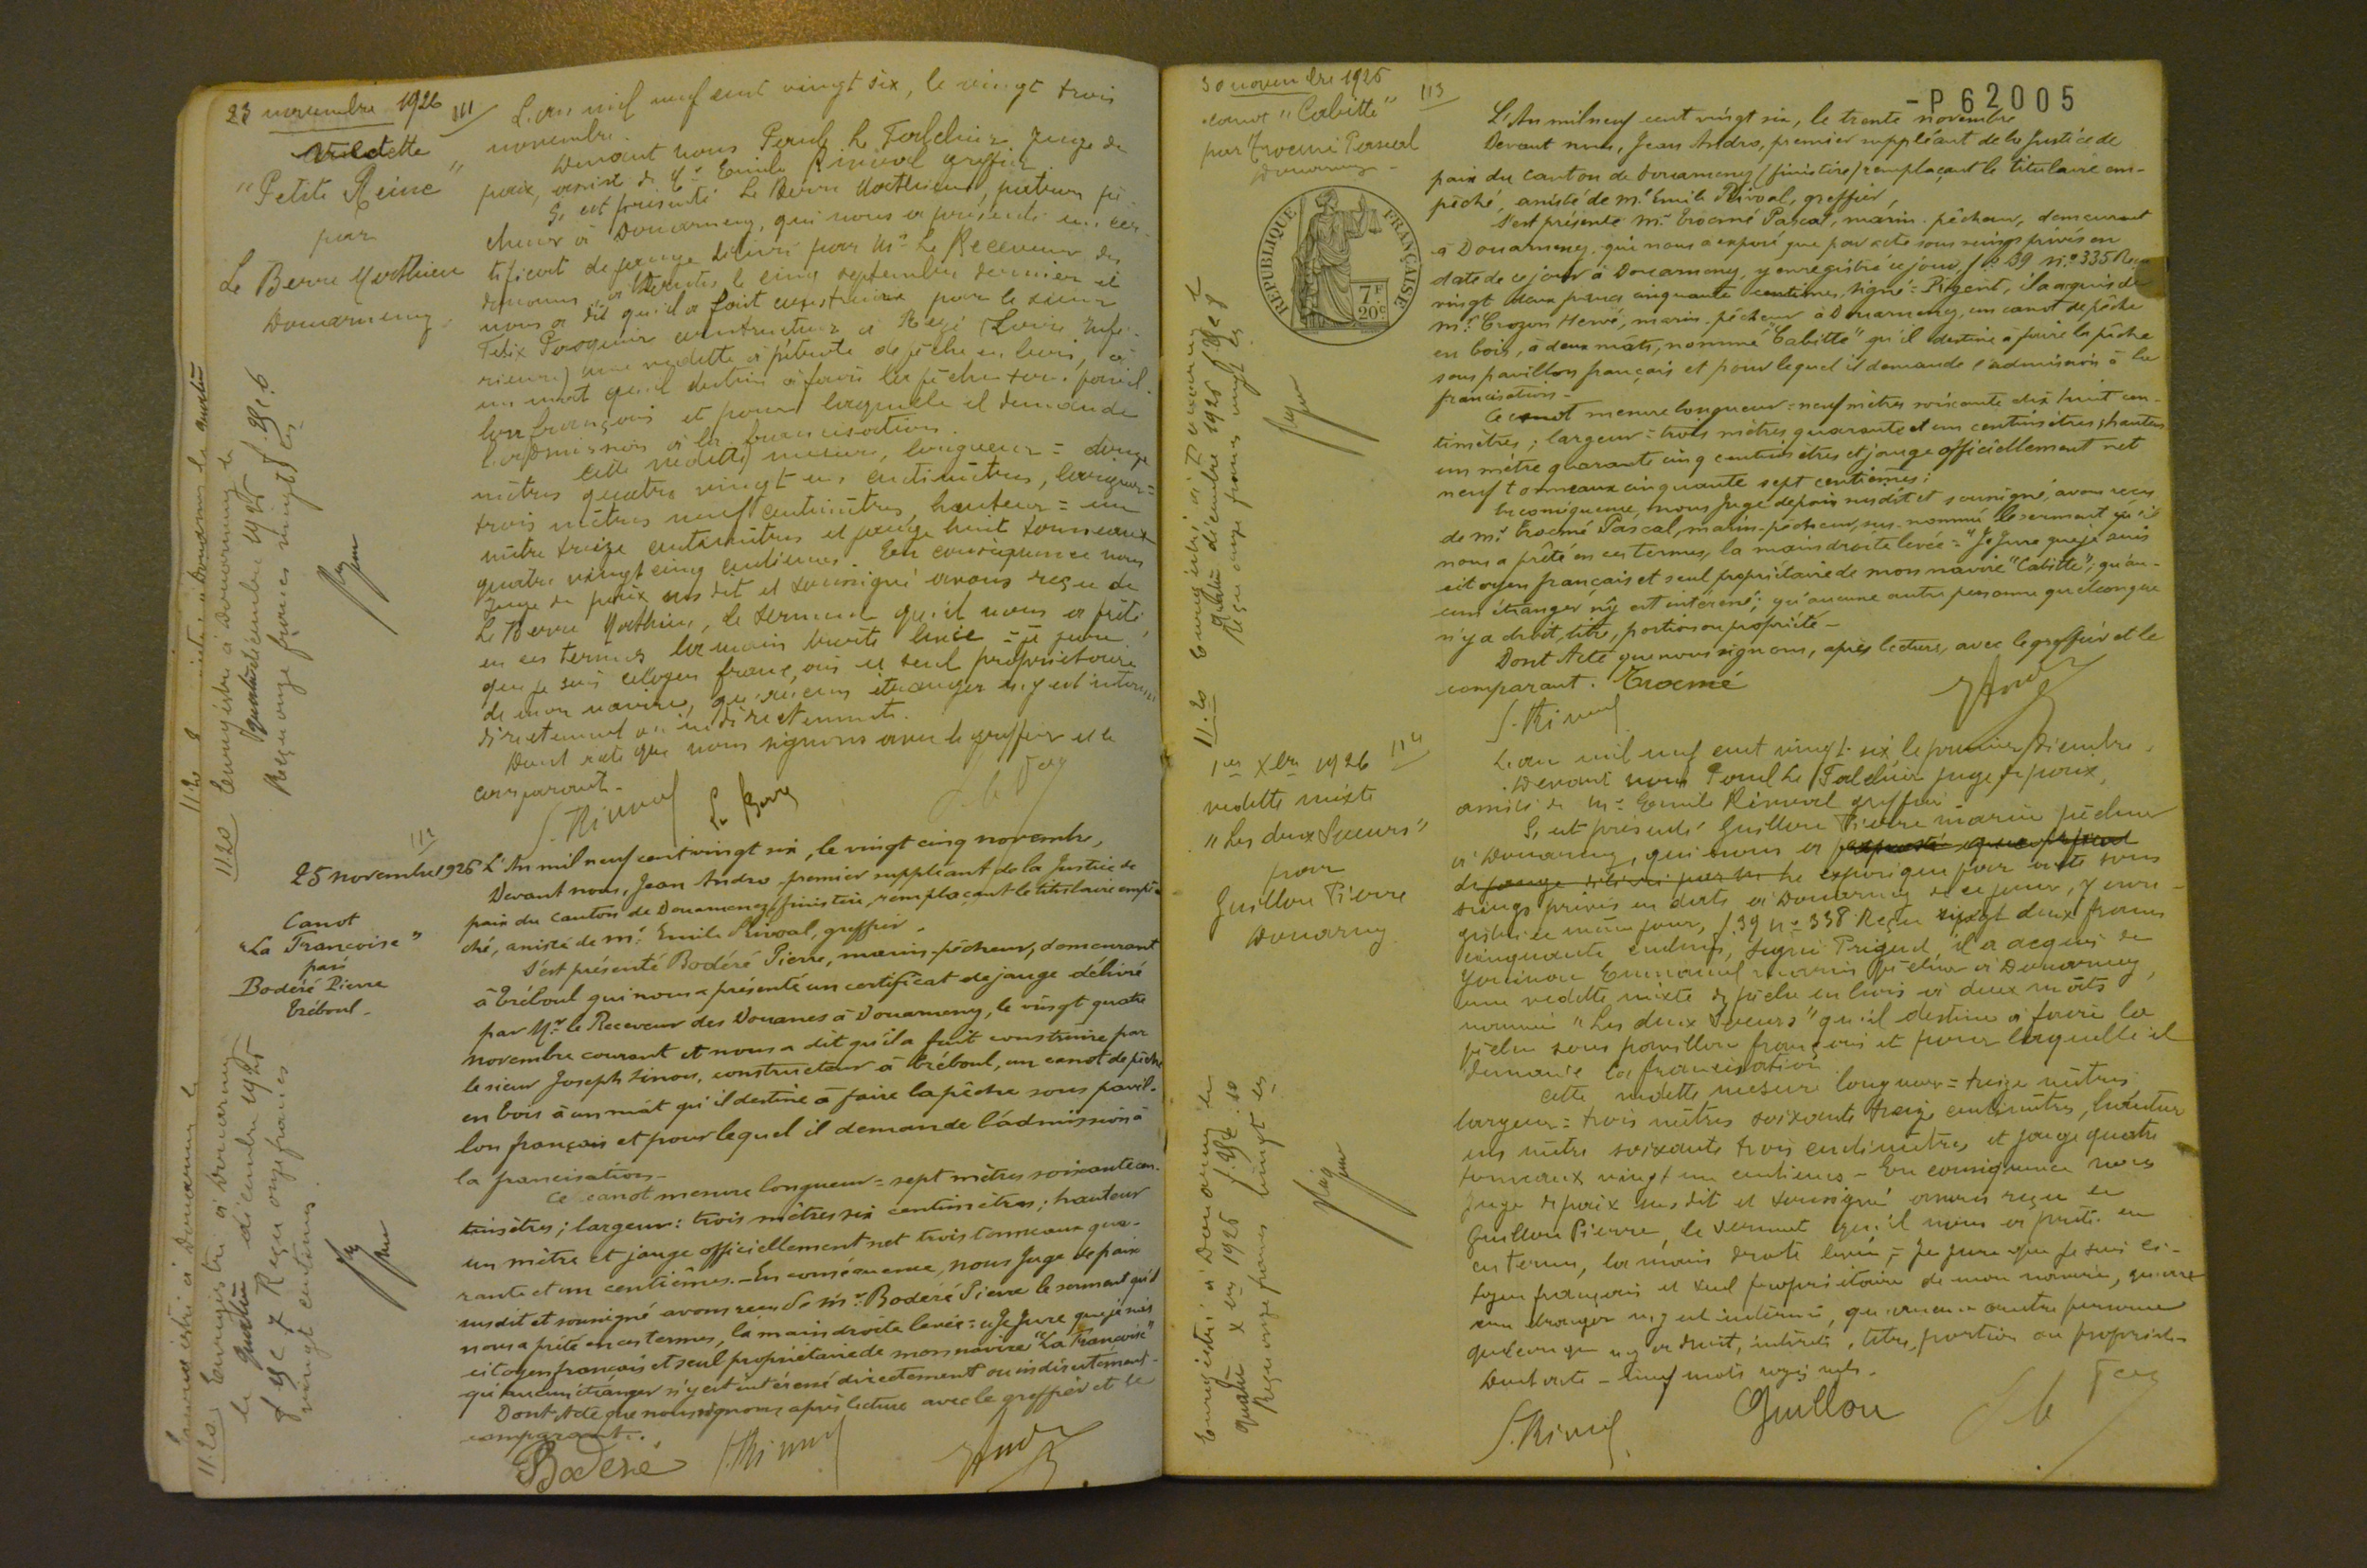 23 novembre 1926 111
Vedette
"Petite Reine"
par
Le Berre Mathieu
Douarnenez
L'an mil neuf cent vingt six, le vingt trois
novembre.
Devant nous Paul Le Juge de
paix, assisté de Mr Emile Rivoal greffier
S'est présenté Le Berre Mathieu, patron pê-
cheur à Douarnenez, qui nous a présenté un cer-
tificat de jauge délivré par Mr Le Receveur des
douanes à Nantes, le cinq septembre dernier et
nous a dit qu'il a fait construire par le sieur
Felix constructeur à Rezé (Loire Infé-
rieure) une vedette à pétrole de pêche en bois, à
un mât qu'il destine à faire la pêche sous pavil-
lon français et pour laquelle il demande
l'admission à la francisation.
Cette vedette mesure, longueur = douze
mètres quatre vingt un centimètres, largeur =
trois mètres neuf centimètres, hauteur = un
mètre treize centimètres et jauge huit tonneaux
quatre vingt cinq centièmes. En conséquence nous
Juge de paix susdit et soussigné avons reçu de
Le Berre Mathieu, le serment qu'il nous a prêté,
en ces termes la main droite levée = je jure
que je suis citoyen français et seul propriétaire
de mon navire, qu'aucun étranger n'y est intéressé
directement ou indirectement.
Dont acte que nous signons avec le greffier et le
comparant.
Rivoal Le Berre
11.20 Enregistré à Douarnenez le
quatre décembre 1926 f. 98 c. 6
Reçu onze francs vingt ces
112
25 novembre 1926
Canot
"La Françoise"
par
Bodéré Pierre
Tréboul -
L'An mil neuf cent vingt six, le vingt cinq novembre,
Devant nous, Jean Andro premier suppléant de la Justice de
paix du canton de Douarnenez, finistère, remplaçant le titulaire empê-
ché, assisté de mr. Emile Rivoal, greffier.
S'est présenté Bodéré Pierre, marin-pêcheur, demeurant
à Tréboul qui nous a présenté un certificat de jauge délivré
par Mr. le Receveur des Douanes à Douarnenez, le vingt quatre
novembre courant et nous a dit qu'il a fait construire par
le sieur Joseph Sinou, constructeur à Tréboul, un canot de pêche
en bois à un mât qu'il destine à faire la pêche sous pavil-
lon français et pour lequel il demande l'admission à
la francisation -
Ce canot mesure longueur = sept mètres soixante cen-
timètres; largeur: trois mètres six centimètres; hauteur
un mètre et jauge officiellement net trois tonneaux qua-
rante et un centièmes. - En conséquence, nous Juge de paix
susdit et soussigné avons reçu de mr. Bodéré Pierre le serment qu'il
nous a prêté en ces termes, la main droite levée: "Je Jure que je suis
citoyen français et seul propriétaire de mon navire "La Françoise"
qu'aucun étranger n'y est intéressé directement ou indirectement -
Dont Acte que nous signons après lecture avec le greffier et le
comparant.
Bodéré Rivoal Andro
11.20 Enregistré à Douarnenez
le quatre décembre 1926
f 98 c 7 Reçu onze francs
vingt centimes.
30 novembre 1926 113
canot "Cabitte"
par Trocmé Pascal
Douarnenez -
REPUBLIQUE FRANÇAISE
7F
20c
- P 62005
L'An mil neuf cent vingt six, le trente novembre
Devant nous, Jean Andro, premier suppléant de la Justice de
paix du canton de Douarnenez (finistère) remplaçant le titulaire em-
pêché, assisté de mr. Emile Rivoal, greffier,
S'est présenté mr. Trocmé Pascal, marin-pêcheur, demeurant
à Douarnenez qui nous a exposé que par acte sous seings privés en
date de ce jour à Douarnenez, y enregistré ce jour, fo 39 no 335 Reçu
vingt deux francs cinquante centimes, signé = Prigent, il a acquis de
mr. Crozon Hervé, marin-pêcheur à Douarnenez, un canot de pêche
en bois, à deux mâts, nommé "Cabitte" qu'il destine à faire la pêche
sous pavillon français et pour lequel il demande l'admission à la
francisation -
Ce canot mesure longueur = neuf mètres soixante dix huit cen-
timètres; largeur = trois mètres quarante et un centimètres, hauteur
un mètre quarante cinq centimètres et jauge officiellement net
neuf tonneaux cinquante sept centièmes;
En conséquence, nous Juge de paix susdit et soussigné, avons reçu
de mr. Trocmé Pascal, marin-pêcheur, sus-nommé le serment qu'il
nous a prêté en ces termes, la main droite levée = "Je Jure que je suis
citoyen français et seul propriétaire de mon navire "Cabitte"; qu'au-
cun étranger n'y est intéressé; qu'aucune autre personne quelconque
n'y a droit, titre, portion ou propriété -
Dont Acte que nous signons, après lecture, avec le greffier et le
comparant. Trocmé
Rivoal Andro
11.20 Enregistré à Douarnenez le
quatre décembre 1926 f. 98 c 8
Reçu onze francs vingt ces
1er Xbre 1926 114
vedette mixte
"Les deux Sœurs"
pour
Guillou Pierre
Douarnenez
L'an mil neuf cent vingt six, le premier décembre,
Devant nous Paul Le juge de paix,
assisté de Mr. Emile Rivoal greffier
S'est présenté Guillou Pierre marin pêcheur
à Douarnenez, qui nous a
de jauge délivré par Mr. Le exposé que par acte sous
seings privés en date à Douarnenez de ce jour, y enre-
gistré ce même jour, f. 39 no 338 Reçu vingt deux francs
cinquante centimes, signé Prigent, il a acquis de
Emmanuel marin pêcheur à Douarnenez,
une vedette mixte de pêche en bois à deux mâts
nommée "Les deux Sœurs" qu'il destine à faire la
pêche sous pavillon français et pour laquelle il
demande la francisation.
Cette vedette mesure longueur = treize mètres
largeur = trois mètres soixante treize centimètres, hauteur
un mètre soixante trois centimètres et jauge quatre
tonneaux vingt un centièmes - En conséquence nous
Juge de paix susdit et soussigné avons reçu de
Guillou Pierre, le serment qu'il nous a prêté en
ces termes, la main droite levée, = Je jure que je suis ci-
toyen français et seul propriétaire de mon navire, qu'au-
cun étranger n'y est intéressé, qu'aucune autre personne
quelconque n'y a droit, intérêts, titre, portion ou propriété
Dont acte - mots rayés nuls.
Rivoal Guillou
Enregistré à Douarnenez le
quatre Xbre 1926 f. 98 c. 10
Reçu onze francs vingt ces